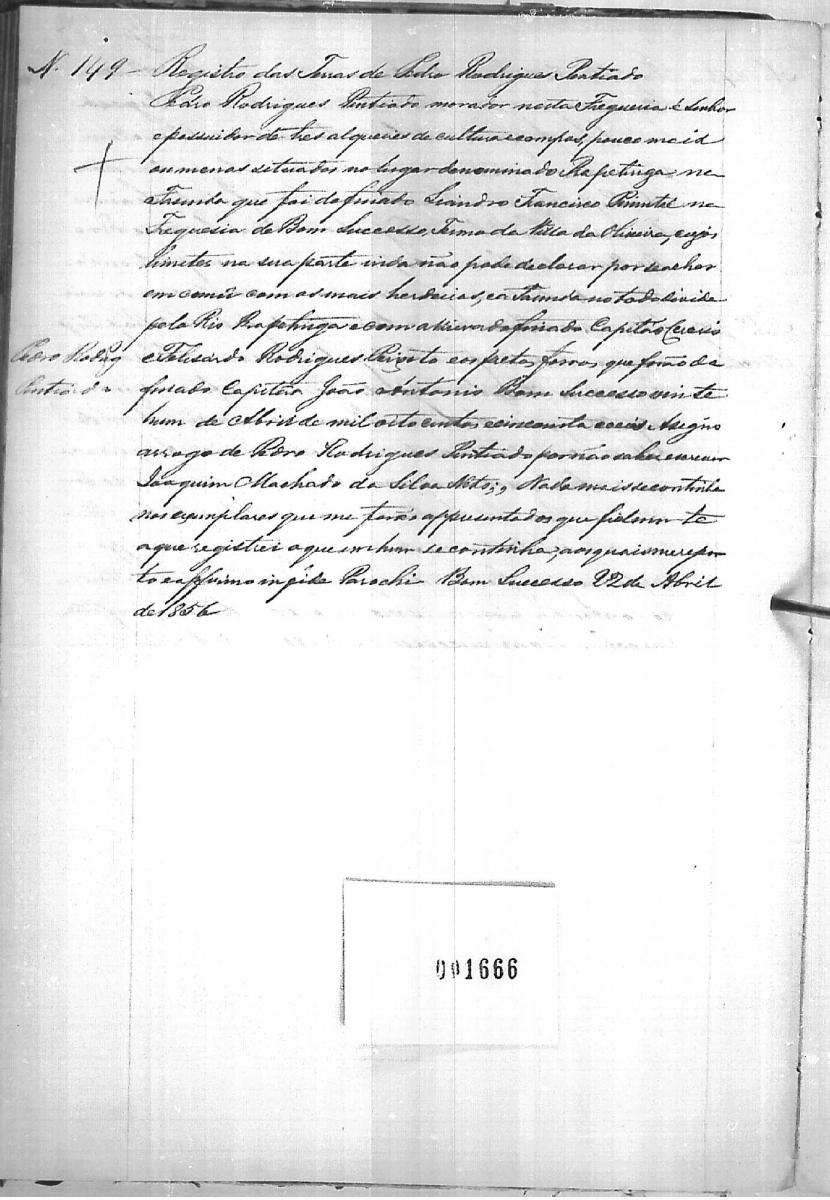 N. 149 – Registro das Terras de Pedro Rodrigues Pentiado
Pedro Rodrigues Pentiado morador nesta Freguesia é Senhor
e possuidor de tres alqueires de cultura e campos, pouco mais
ou menos situados no lugar denominado Rapetinga na
Fasenda que foi do finado Leandro Francisco Pimentel na
Freguesia de Bom Successo, Termo da Villa da Oliveira, cujos
limites na sua parte inda não pode declarar por se achar
em comũ com os mais herdeiros, e a Fasenda no todo divide
pelo Rio Rapetinga e com a viuva do finado Capitão
e Felisardo Rodrigues Peixoto e os pretos forros, que forão do
finado Capitão João Antonio Bom Successo vinte
hum de Abril de mil oito centos e cincoenta e seis Asigno
a rrogo de Pedro Rodrigues Pentiado por não saber escrever
Joaquim Machado da Silva Neto; Nada mais se continha
nos exemplares que me forão appresentados que fielmente
aqui registrei o que em hum se continha, aos quais me repor
to e affirmo in fide Parochi Bom Successo 22 de Abril
de 1856
Pedro Rodrig
Pentiado
001666